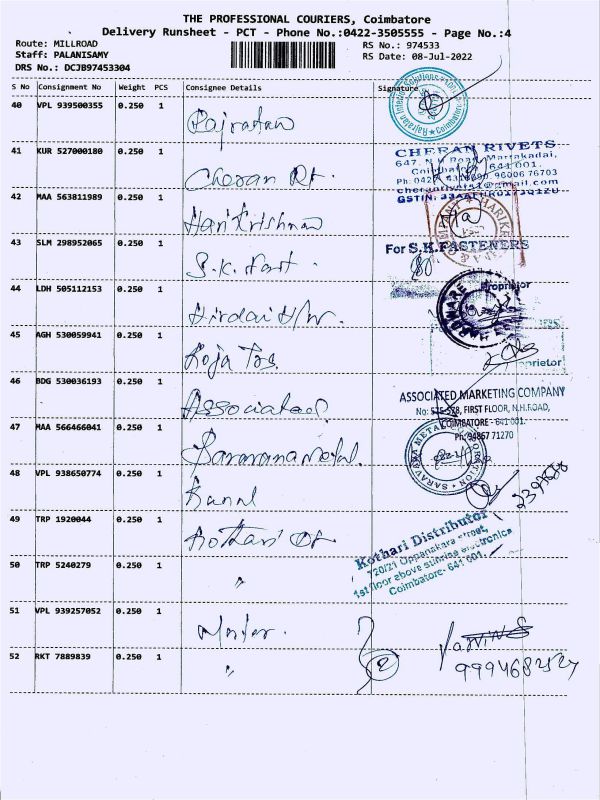 THE PROFESSIONAL COURIERS, Coimbatore
Delivery Runsheet - PCT - Phone No.:0422-3505555 - Page No.:4
Route: MILLROAD
RS No.: 974533
Staff: PALANISAMY
RS Date: 08-Jul-2022
DRS No.: DCJB97453304
S No Consignment No Weight PCS Consignee Details Signature
40 VPL 939500355 0.250 1
Rajratan
41 KUR 527000180 0.250 1
Cheran Rt.
CHERAN RIVETS
641 001.
GSTIN:
42 MAA 563811989 0.250 1
Hari Krishna
43 SLM 298952065 0.250 1
S.K. Fast.
For S.K.FASTENERS
Proprietor
44 LDH 505112153 0.250 1
H/W.
HARDWARE
45 AGH 530059941 0.250 1
Roja Trs.
prietor
46 BDG 530036193 0.250 1
Associated.
ASSOCIATED MARKETING COMPANY
FIRST FLOOR, N.H.ROAD,
COIMBATORE - 641 001.
Ph: 94867 71270
47 MAA 566466041 0.250 1
Saravana Metal.
48 VPL 938650774 0.250 1
49 TRP 1920044 0.250 1
Kothari Dt
Kothari Distributor
720/21 Oppanakara street,
1st floor above sunrise electronics
Coimbatore- 641 001.
50 TRP 5240279 0.250 1
"
51 VPL 939257052 0.250 1
52 RKT 7889839 0.250 1
"
2